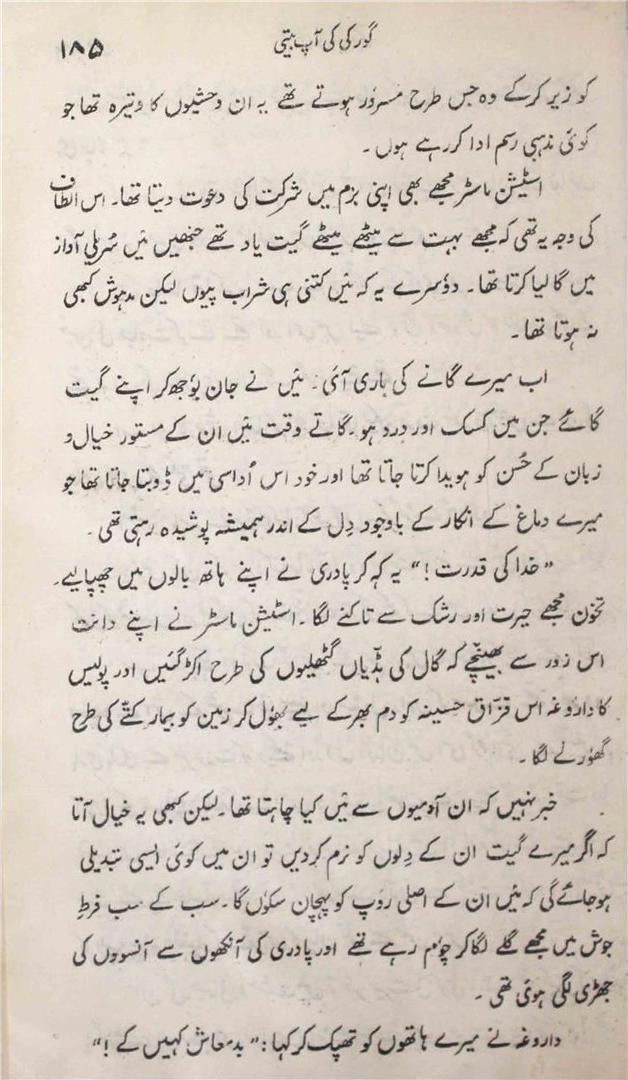 گورکی کی آپ بیتی
۱۸۵
کو زیر کرکے وہ جس طرح مسرور ہوتے تھے یہ ان وحشیوں کا وتیرہ تھا جو
کوئی مذہبی رسم ادا کر رہے ہوں۔
اسٹیشن ماسٹر مجھے بھی اپنی بزم میں شرکت کی دعوت دیتا تھا۔ اس الطاف
کی وجہ یہ تھی کہ مجھے بہت سے میٹھے میٹھے گیت یاد تھے جنھیں مَیں سُریلی آواز
میں گا لیا کرتا تھا۔ دوسرے یہ کہ مَیں کتنی ہی شراب پیوں لیکن مدہوش کبھی
نہ ہوتا تھا۔
اب میرے گانے کی باری آئی۔ مَیں نے جان بُوجھ کر اپنے گیت
گائے جن میں کسک اور درد ہو۔ گاتے وقت مَیں ان کے مستور خیال و
زبان کے حُسن کو ہویدا کرتا جاتا تھا اور خود اس اُداسی میں ڈوبتا جاتا تھا جو
میرے دماغ کے انکار کے باوجود دِل کے اندر ہمیشہ پوشیدہ رہتی تھی۔
”خدا کی قدرت!“ یہ کہہ کر پادری نے اپنے ہاتھ بالوں میں چھپا لیے۔
تخون مجھے حیرت اور رشک سے تاکنے لگا۔ اسٹیشن ماسٹر نے اپنے دانت
اس زور سے بھینچے کہ گال کی ہڈیاں گٹھلیوں کی طرح اکڑ گئیں اور پولیس
کا داروغہ اس قزّاق حسینہ کو دم بھر کے لیے بھُول کر زمین کو بیمار کتّے کی طرح
گھورنے لگا۔
خبر نہیں کہ ان آدمیوں سے مَیں کیا چاہتا تھا۔ لیکن کبھی یہ خیال آتا
کہ اگر میرے گیت ان کے دِلوں کو نرم کردیں تو ان میں کوئی ایسی تبدیلی
ہوجائے گی کہ مَیں ان کے اصلی رُوپ کو پہچان سکوں گا۔ سب کے سب فرطِ
جوش میں مجھے گلے لگا کر چوم رہے تھے اور پادری کی آنکھوں سے آنسووں کی
جھڑی لگی ہوئی تھی۔
داروغہ نے میرے ہاتھوں کو تھپک کر کہا: ”بدمعاش کہیں کے!“